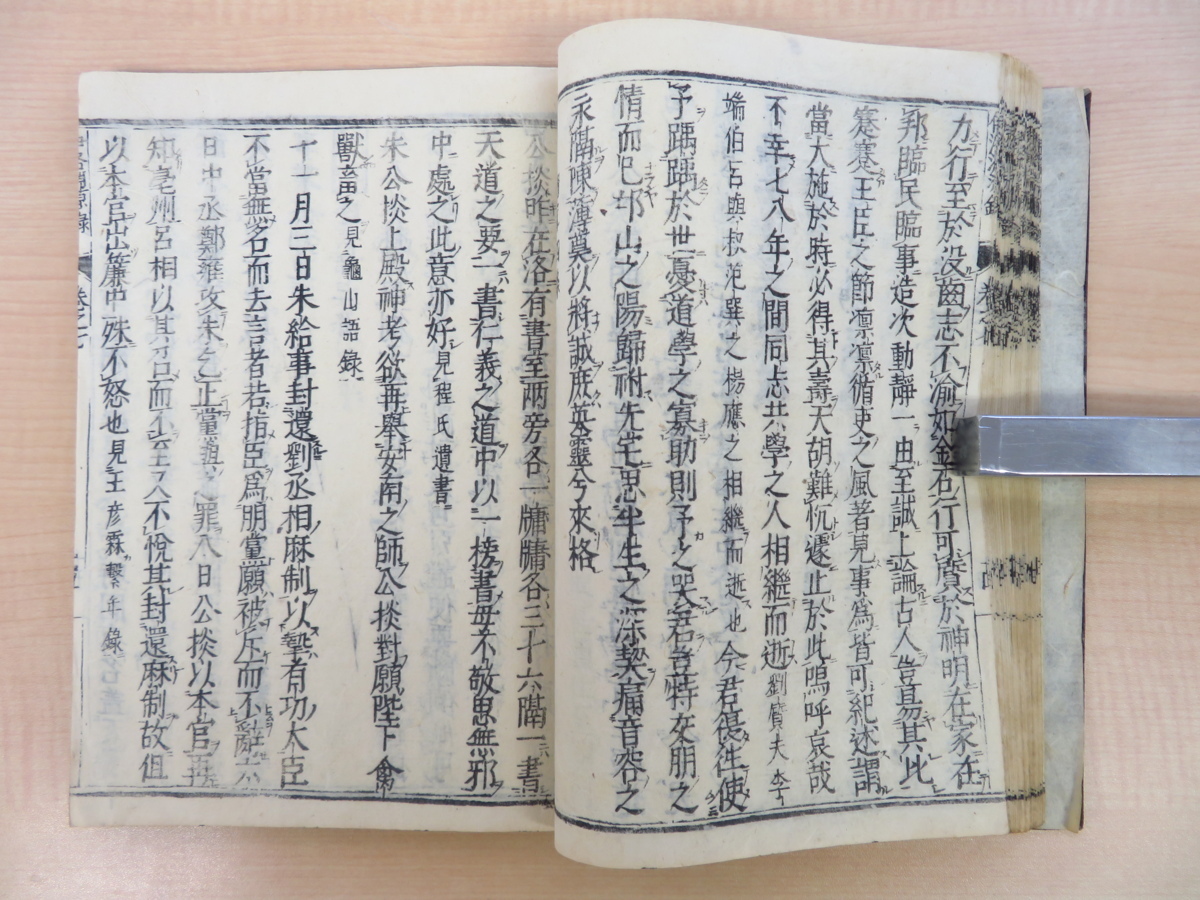 力行至於没齒志不渝如金石行可質於神明在家在
邦臨民臨事造次動靜一由至誠上論古人豈易其比
蹇蹇王臣之節凛凛循吏之風著見事爲皆可紀述謂
當大施於時必得其壽天胡難忱遽止於此嗚呼哀哉
不幸七八年之間同志共學之人相繼而逝劉質夫李
端伯呂與叔范巽之楊應之相繼而逝也今君復往使
予踽踽於世憂道學之寡助則予之哭君豈特交朋之
情而已邙山之陽歸祔先宅思半生之深契痛音容之
永隔陳薄奠以將誠庶英靈兮來格
公掞昨在洛有書室兩旁各一牖牖各三十六隔一書
天道之要一書仁義之道中以一榜書毋不敬思無邪
中處之此意亦好見程氏遺書
朱公掞上殿神考欲再舉安南之師公掞對願陛下禽
獸畜之見龜山語錄
十一月三日朱給事封還劉丞相麻制以摯有功大臣
不當無名而去言者若指臣爲朋黨願被斥而不辭
日中丞鄭雍攻朱之正黨之罪八日公掞以本官再
知亳州呂相以其而不至又不悅其封還麻制故但
以本官出簾中殊不怒也見王彦霖繫年錄